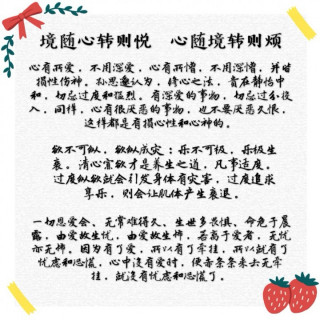 境随心转则悦 心随境转则烦
心有所爱，不用深爱，心有所憎，不用深憎，并皆
损性伤神。孙思邈认为，修心之法，贵在静怡中
和，切忌过度和猛烈。有深爱的事物，切忌过分投
入，同样，心有很厌恶的事物，也不要厌恶久恨，
这样都是有损心性和心神的。
欲不可纵，欲纵成灾；乐不可极，乐极生
衰。清心寡欲才是养生之道，凡事适度。
过度纵欲就会引发身体有灾害，过度追求
享乐，则会让肌体产生衰退。
一切恩爱会、无常难得久、生世多畏惧、命危于晨
露，由爱故生忧，由爱故生怖，若离于爱者，无忧
亦无怖。因为有了爱，所以有了牵挂，所以就有了
忧虑和恐慌，心中没有爱时，便赤条条来去无牵
挂，就没有忧虑和恐慌了。